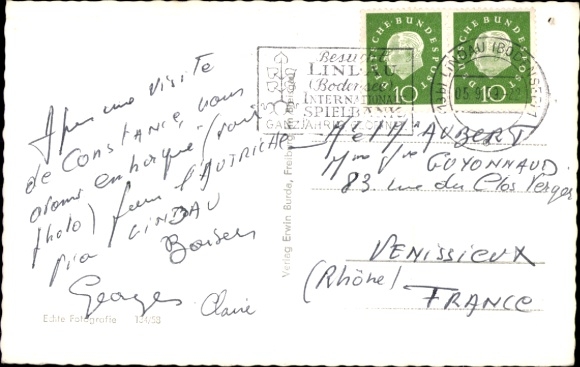 Après une visite
de CONSTANCE, nous
avons embarqué (voir
photo) pour l'AUTRICHE
via LINDAU
Baisers
Georges Claire
Echte Fotografie 134/58
Verlag Erwin Burda, Freiburg im Breisgau
DEUTSCHE BUNDESPOST
10
DEUTSCHE BUNDESPOST
10
Besucht
LINDAU
(Bodensee)
INTERNATIONALE
SPIELBANK
GANZJÄHRIG
LINDAU (BODENSEE)
AUBERT
GUYONNAUD
83 rue du Clos Verger
VENISSIEUX
(Rhône)
FRANCE